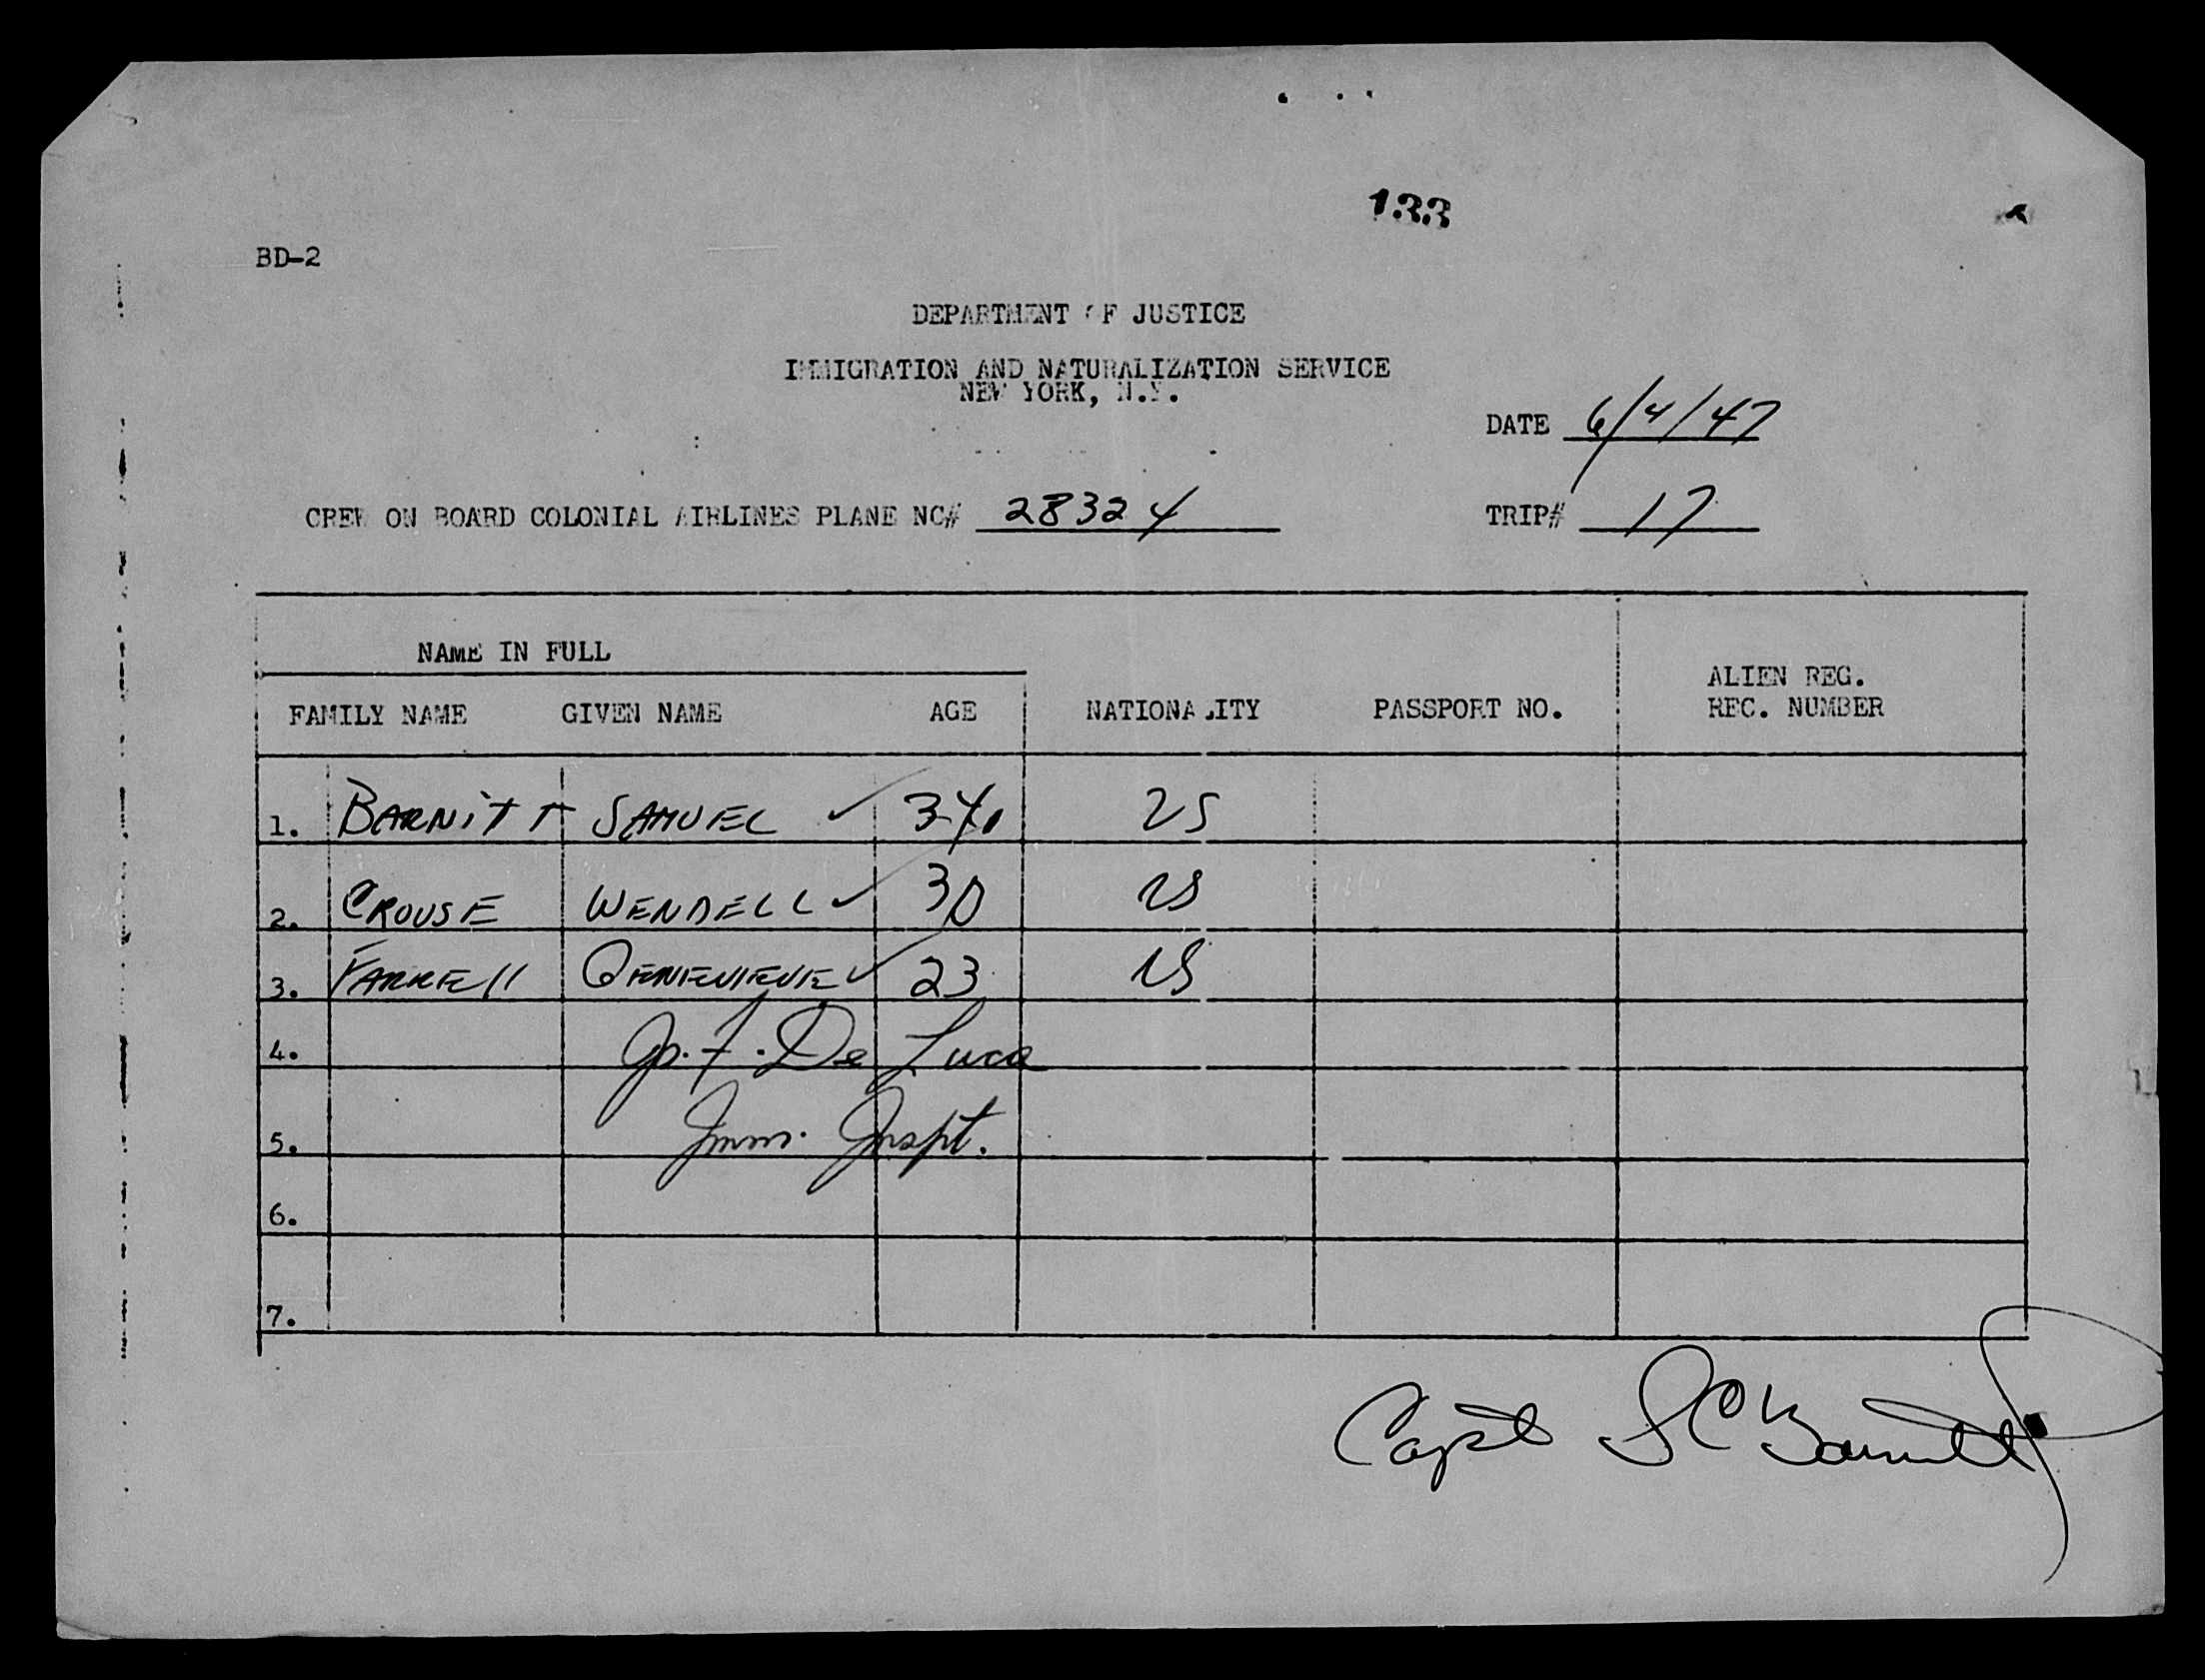 133
BD-2
DEPARTMENT OF JUSTICE
IMMIGRATION AND NATURALIZATION SERVICE
NEW YORK, N.Y.
DATE 6/4/47
CREW ON BOARD COLONIAL AIRLINES PLANE NC# 28324 TRIP# 17
NAME IN FULL
FAMILY NAME GIVEN NAME AGE NATIONALITY PASSPORT NO. ALIEN REG. REC. NUMBER
1. BARNITT SAMUEL ✓ 34 US
2. CROUSE WENDELL ✓ 30 US
3. FARRELL GENEVIEVE ✓ 23 US
4. De Luca
5. Imm. Inspt.
6.
7.
Capt S C Barnitt